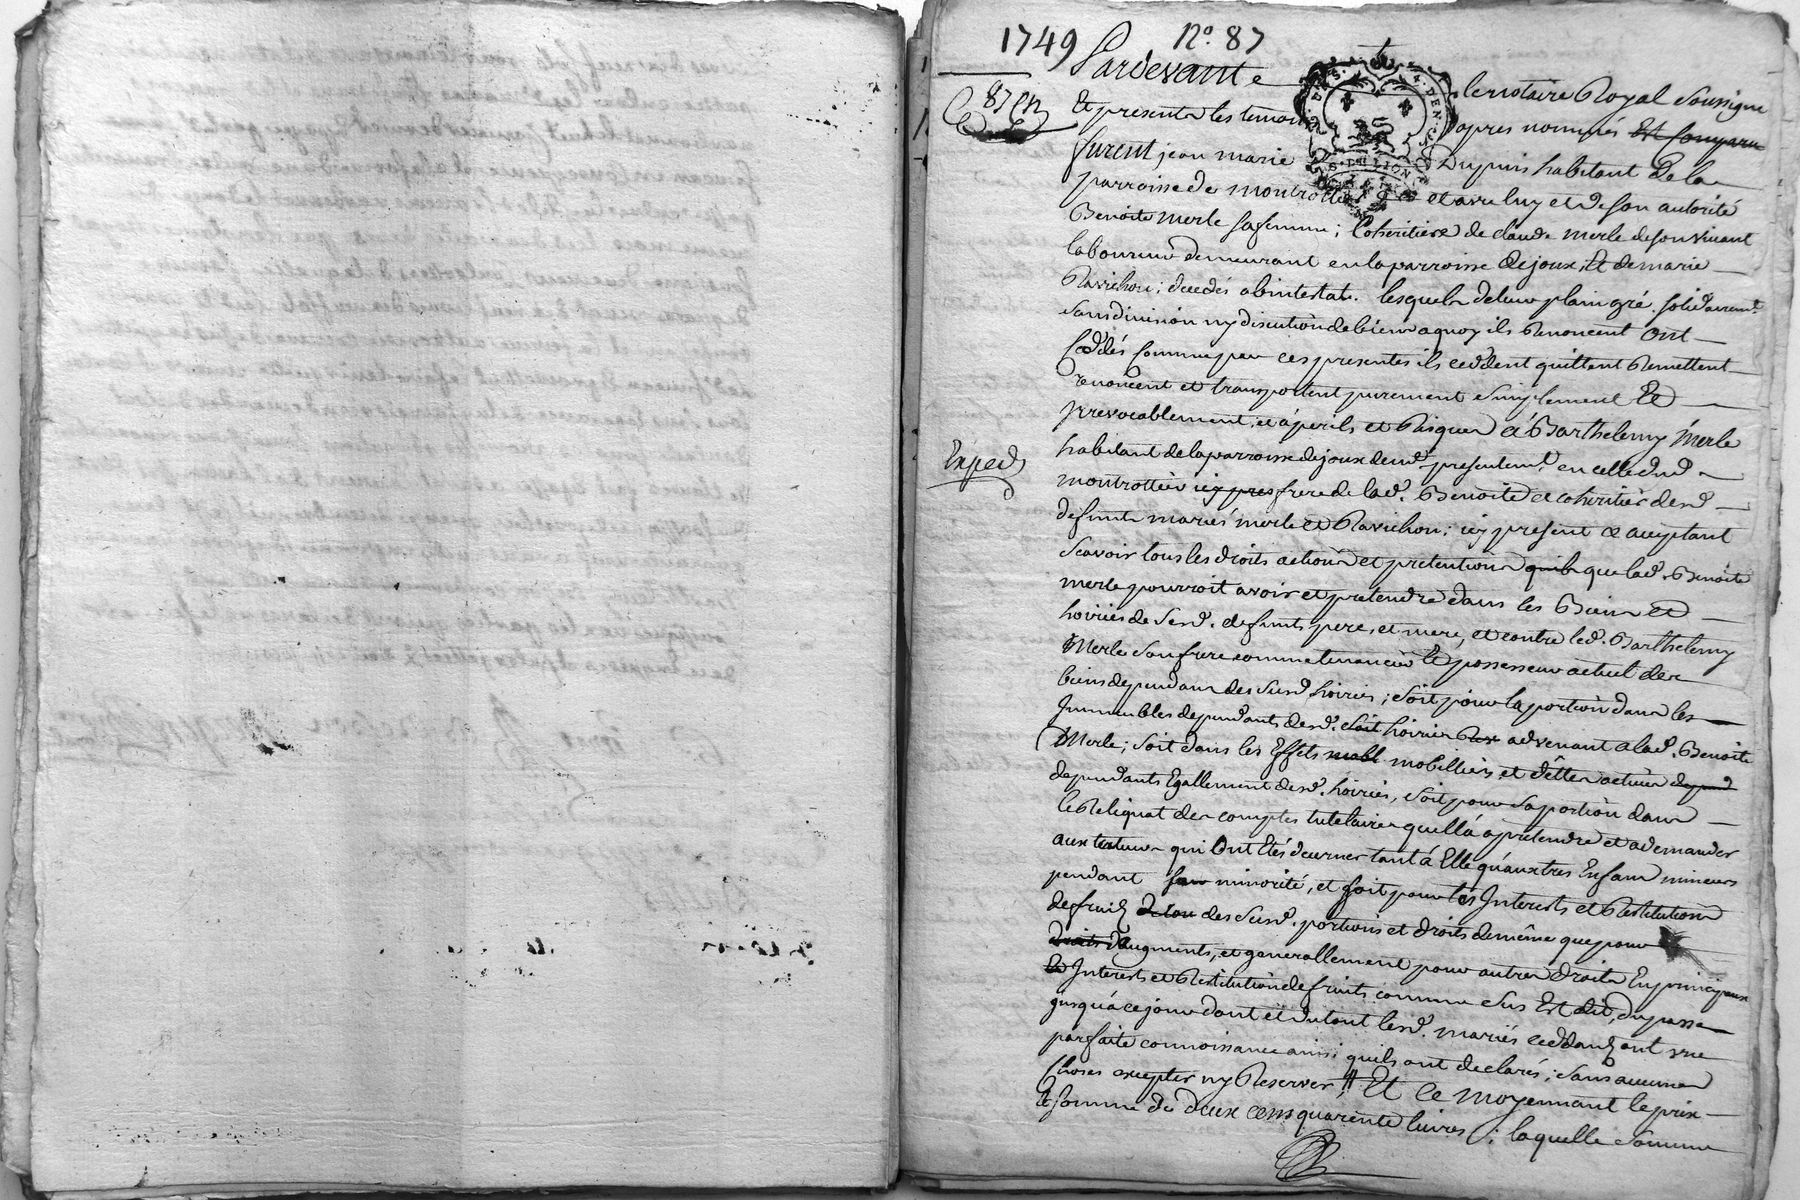 1749 N.º 87
Pardevant Le notaire Royal Soussigné
87 En
Et presents les temoins apres nommés Est Comparu
furent jean marie Dupuis habitant de la
parroisse de montrottier et avec luy et de son autorité
Benoite Merle sa femme ; Coheritiere de claude Merle de son vivant
laboureur demeurant en la parroisse de joux, Et de marie
Ravichon ; decedés abintestat. lesquels de leur plain gré solidairemt.
sans division ny discution de biens a quoy ils Renoncent ont
Ceddés comme par ces presentes ils ceddent quittent Remettent
renoncent et transportent purement simplement Et
jrrevocablement, et à perils et Risques à Barthelemy Merle
habitant de la parroisse de joux demt. presentemt. en celle dud.
Exped
montrottier icy pres frere de lad. Benoite et coheritier desd.
defunts mariés merle et Ravichon ; icy present et acceptant
Scavoir tous les droits actions et pretentions quils que lad. Benoite
merle pourroit avoir et pretendre dans les Biens et
hoiries de Sesd. defunts pere, et mere, et contre led. Barthelemy
Merle Son frere comme tenancier Et possesseur actuel des
biens dependans des Susd. hoiries ; soit pour la portion dans les
Jmmeubles dependants desd. Soit hoiries advenant a lad. Benoite
Merle ; soit dans les Effets mobl mobilliers et dettes actives depend
dependants Egallement desd. hoiries, soit pour sa portion dans
le Reliquat des comptes tutelaires quelle a à pretendre et a demander
aux tuteurs qui ont Etés decernes tant à Elle quaux tres Enfans mineurs
pendant leur minorité, et soit pour les Interests et Restitution
de fruits des Susd. portions et droits de même que pour
droits D'augments, et generallement pour autres droits En principaux
Et Interests et Restitution de fruits comme Sus Est dit, du passé
jusqua ce jour dont et du tout lesd. mariés ceddants ont une
parfaite connoissance ainsi quils ont declarés ; sans aucunes
Choses excepter ny Reserver, Et Ce moyennant le prix
Et somme de deux cens quarente livres ; laquelle somme